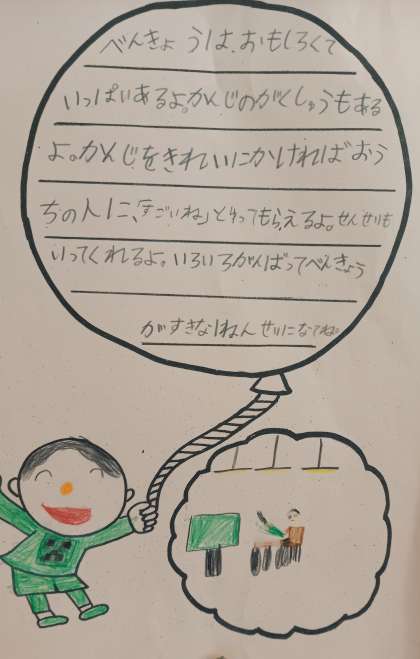 べんきょうは、おもしろくて
いっぱいあるよ。かんじのがくしゅうもある
よ。かんじをきれいにかければおう
ちの人に、「すごいね」といってもらえるよ。せんせいも
いってくれるよ。いろいろがんばってべんきょう
がすきな1ねんせいになてね。